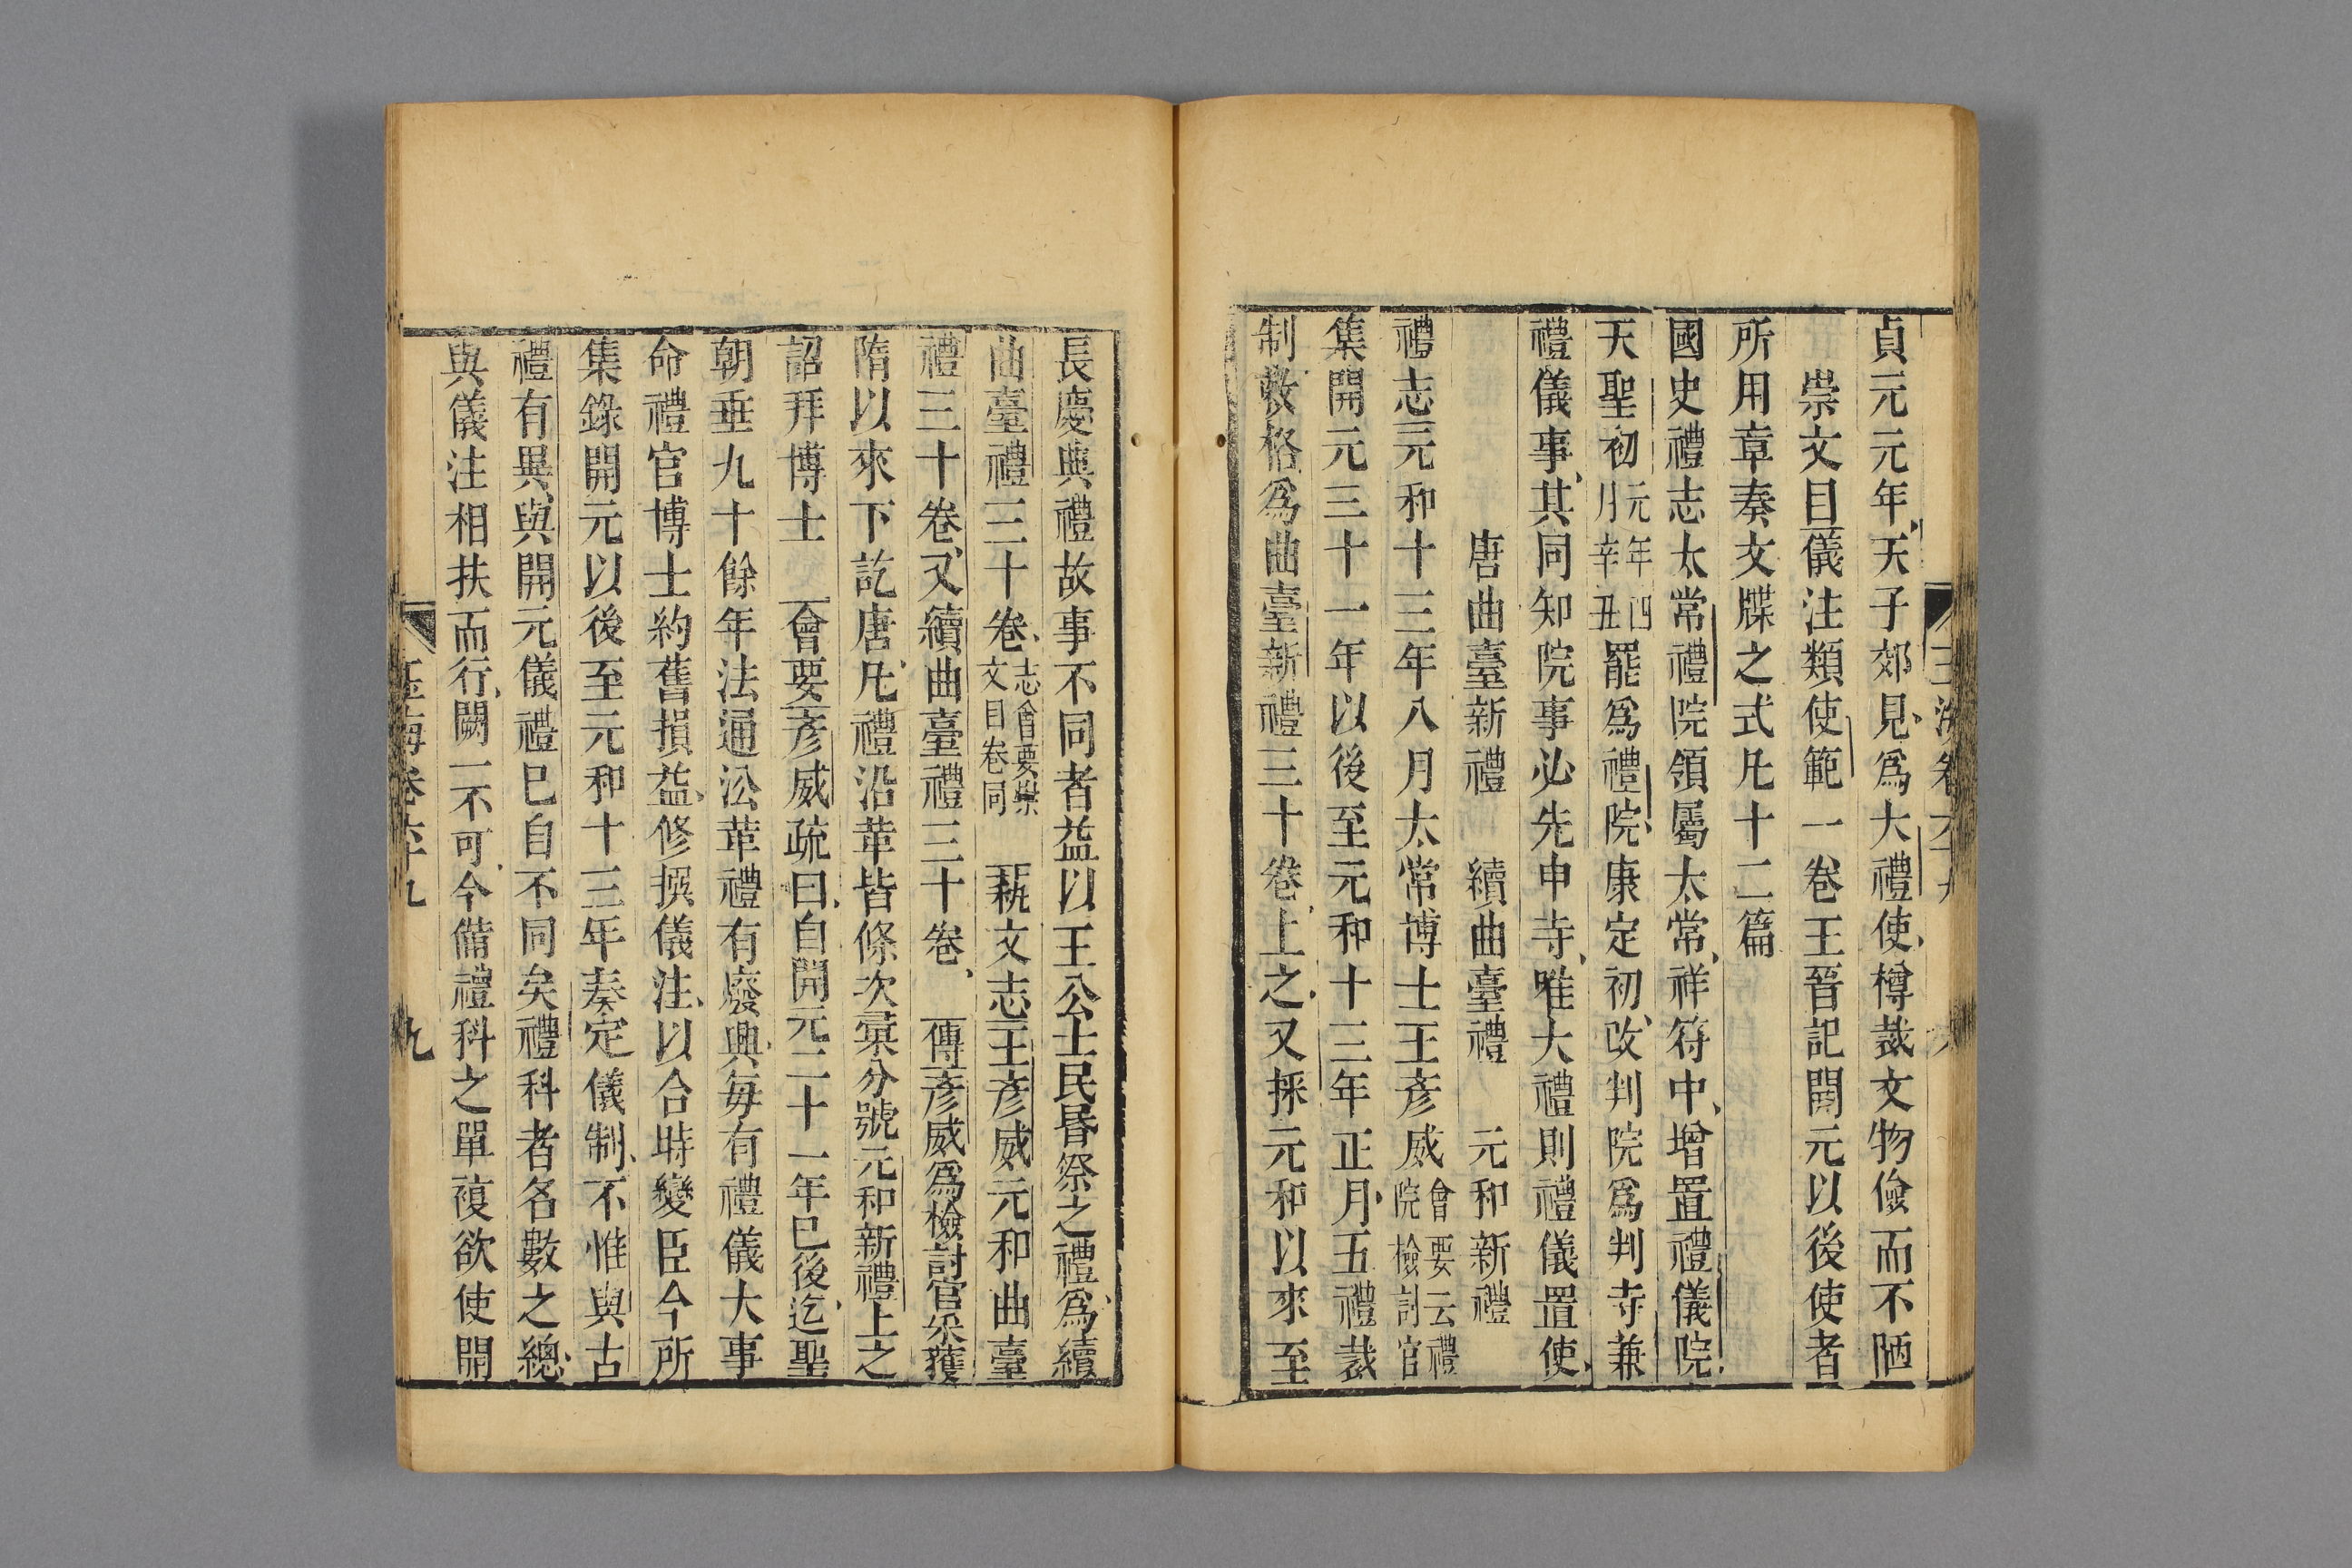 貞元元年天子郊見爲大禮使樽裁文物儉而不陋
崇文目儀注類使範一卷王晉記開元以後使者
所用章奏文牒之式凡十二篇
國史禮志太常禮院領屬太常祥符中增置禮儀院
天聖初元年四月辛丑罷爲禮院康定初改判院爲判寺兼
禮儀事其同知院事必先申寺唯大禮則禮儀置使
唐曲臺新禮 續曲臺禮 元和新禮
禮志元和十三年八月太常博士王彥威會要云禮院檢討官
集開元三十一年以後至元和十三年正月五禮裁
制敕格爲曲臺新禮三十卷上之又採元和以來至
長慶典禮故事不同者益以王公士民昏祭之禮爲續
曲臺禮三十卷志會要崇文目卷同 藝文志王彥威元和曲臺
禮三十卷又續曲臺禮三十卷 傳彥威爲檢討官采獲
隋以來下訖唐凡禮沿革皆條次彙分號元和新禮上之
詔拜博士 會要彥威疏曰自開元二十一年已後迄聖
朝垂九十餘年法通㳂革禮有廢興每有禮儀大事
命禮官博士約舊損益修撰儀注以合時變臣今所
集錄開元以後至元和十三年奏定儀制不惟與古
禮有異與開元儀禮已自不同矣禮科者名數之總
與儀注相扶而行闕一不可今備禮科之單複欲使開
玉海卷六十九 九